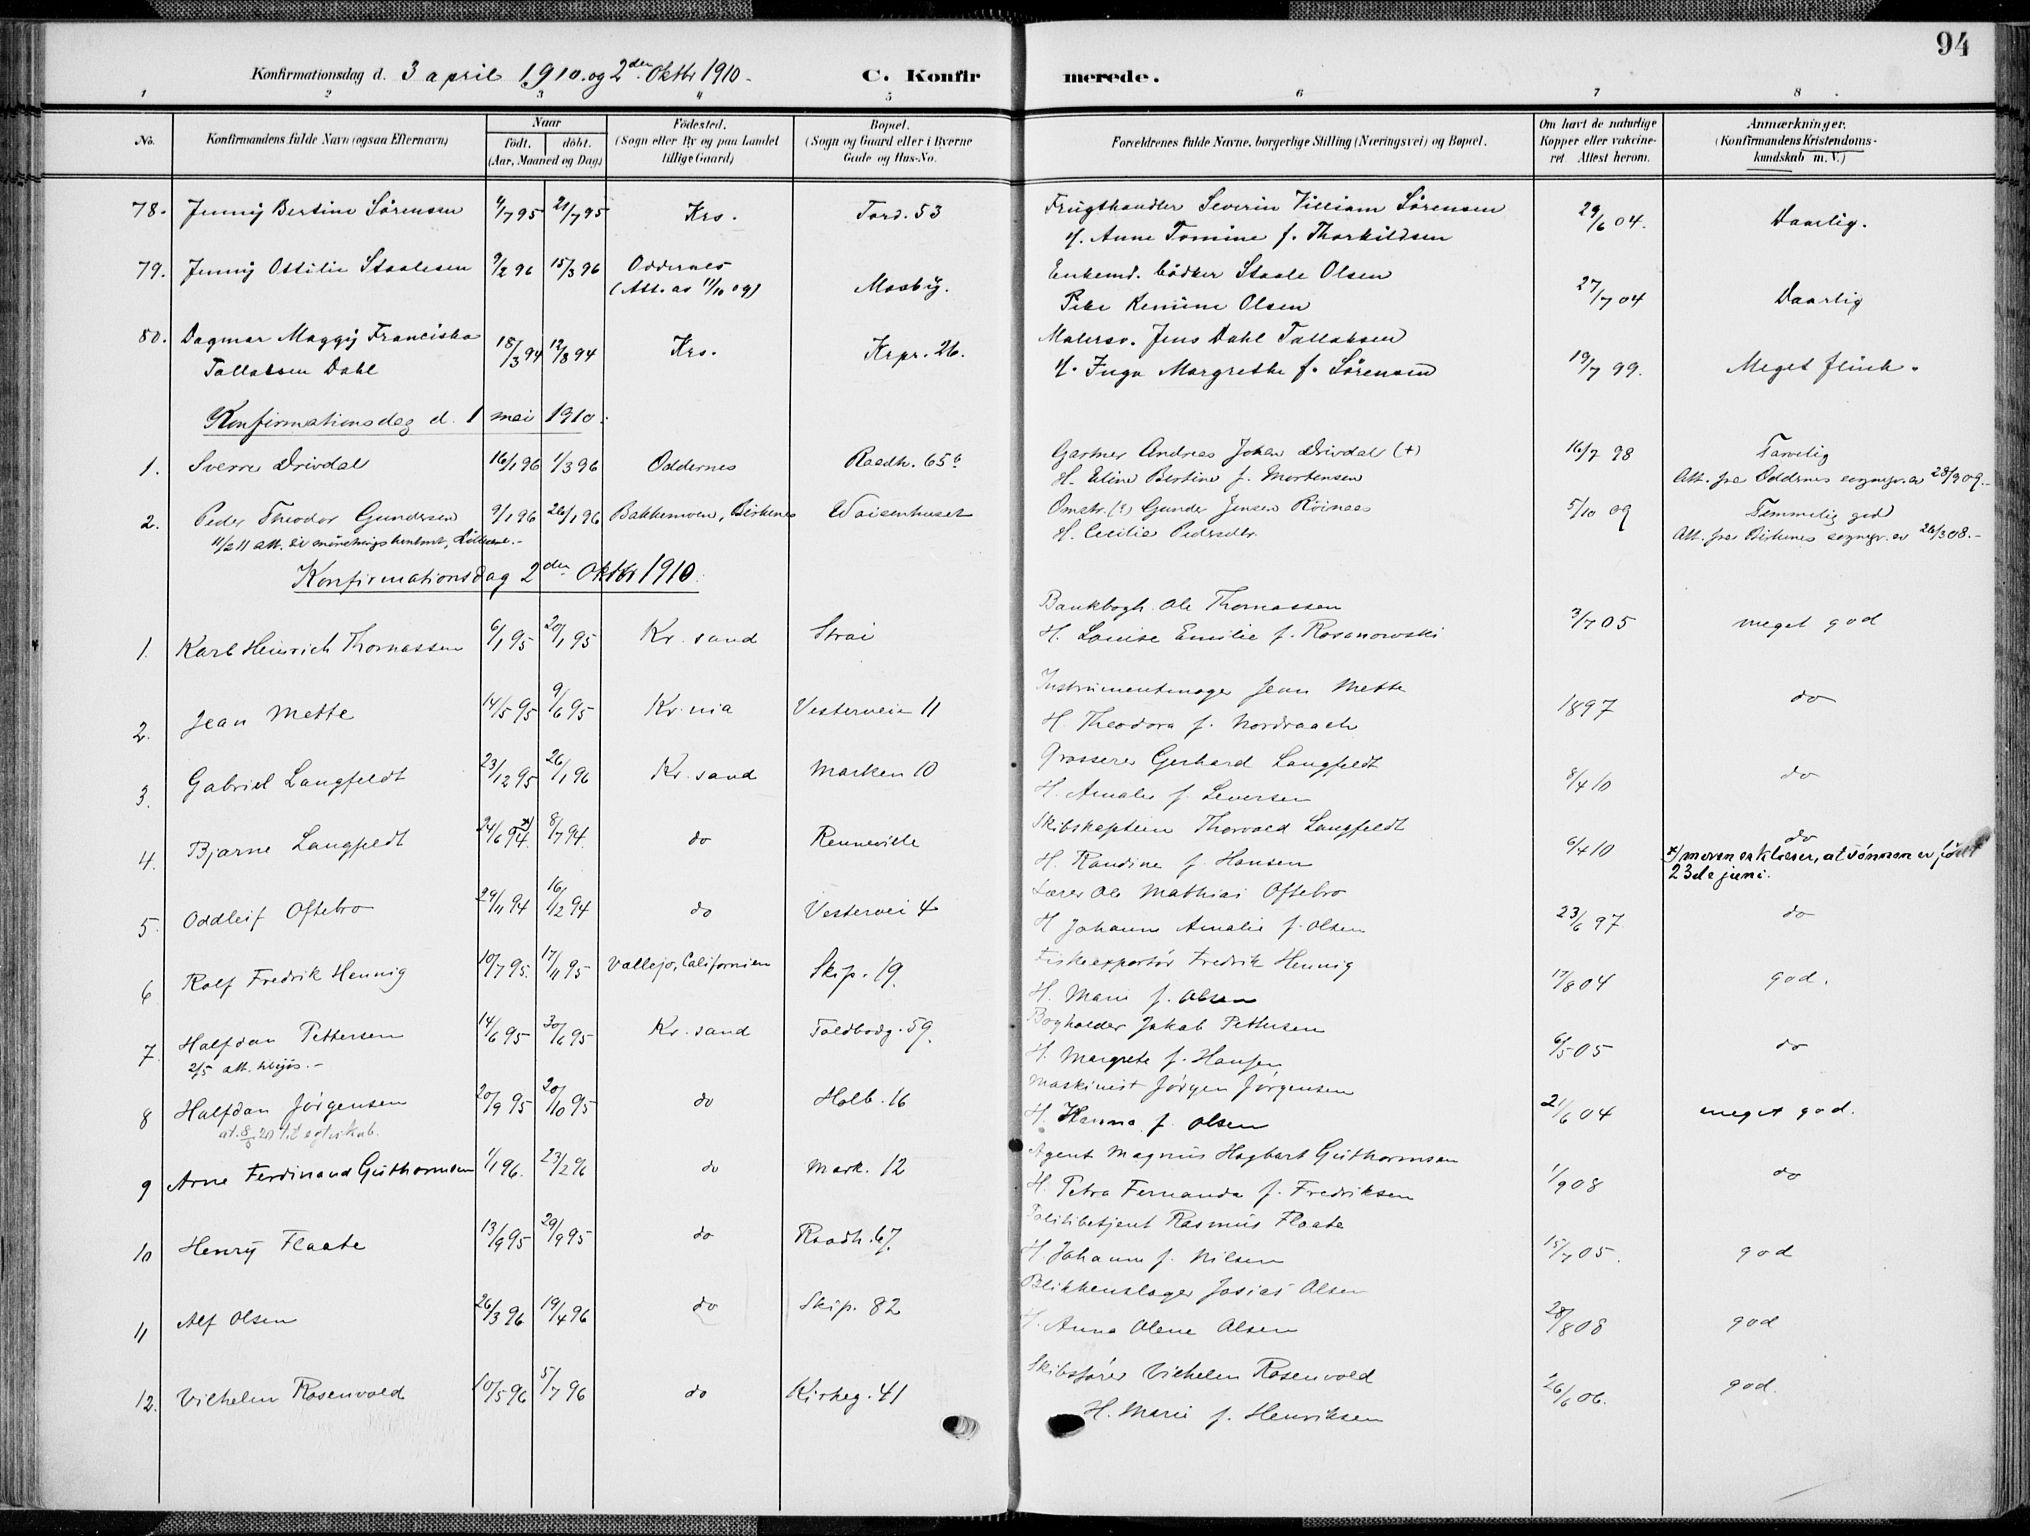 94
Konfirmationsdag d. 3 april 1910. og 2den Oktbr 1910.
C. Konfirmerede.
1 2 3 4 5 6 7 8
No. Konfirmandens fulde Navn (ogsaa Efternavn) Naar födt. döbt. (Aar, Maaned og Dag) Födested. (Sogn eller By og paa Landet tillige Gaard) Bopæl. (Sogn og Gaard eller i Byerne Gade og Hus-No. Forældrenes fulde Navne, borgerlige Stilling (Næringsvei) og Bopæl. Om havt de naturlige Kopper eller vakcineret. Attest herom. Anmærkninger. (Konfirmandens Kristendomskundskab m. V.)
78. Jenny Bertine Sörensen 4/7 95 21/7 95 Krs. Tord. 53 Frugthandler Severin Villiam Sörensen 29/6 04. Daarlig.
H. Anne Tomine f. Thorkildsen
79. Jenny Ottilie Staalesen 9/2 96 15/3 96 Oddernes Mosby. Enkemd. bödker Staale Olsen 27/7 04 Daarlig
(Att. av 11/10 09) Olsen
80. Dagmar Maggy Franciska 18/3 94 12/8 94 Krs. Krpr. 26. Malersv. Jens Dahl Tallaksen 19/7 99. Meget flink.
Tallaksen Dahl H. Inga Margrethe f. Sörensen
Konfirmationsdag d. 1 mai 1910.
1. Sverre Drivdal 16/1 96 1/3 96 Oddernes Raadh. 65b Gartner Andreas Johan Drivdal (+) 16/7 98 Tarvelig
H. Eline Bertine f. Mortensen Att. fra Oddernes sognepr. av 28/9 09.
2. Peder Theodor Gundersen 9/1 96 26/1 96 Bakkemoen, Birkenes Waisenhuset Omstr. (?) Gunder Jensen Röinaas 5/10 09 Temmelig god
11/2 11 att. H. Cecilie Pedersdtr. Att. fra Birkenes sognepr. av 26/3 08.
Konfirmationsdag 2den Oktbr 1910.
1. Karl Heinrich Thomassen 6/1 95 20/1 95 Kr. sand Strai Bankbogh. Ole Thomassen 3/7 05 meget god
H. Louise Emilie f. Rosanowski
2. Jean Mette 14/5 95 9/6 95 Kr. nia Vesterveien 11 Instrumentmager Jean Mette 1897 do
H. Theodora f. Nordraach
3. Gabriel Langfeldt 23/12 95 26/1 96 Kr. sand Marken 10 Grosserer Gerhard Langfeldt 8/4 10 do
H. Amalie f. Seversen
4. Bjarne Langfeldt 24/6 94 x) 8/7 94. do Renneville Skibskaptein Thorvald Langfeldt 6/4 10 do
H. Randine f. Hansen x) moren erklærer, at sönnen er födt 23de juni.
5. Oddleif Oftebro 29/11 94 16/12 94 do Vestervei 4 Lærer Ole Mathias Oftebro 23/6 97 do
H Johanne Amalie f. Olsen
6 Rolf Fredrik Hennig 10/7 95. 17/11 95 Vallejo, Californien Skip. 19. Fiskeexportör Fredrik Hennig 17/8 04 god.
H. Marie f. Olsen
7. Halfdan Pettersen 14/6 95 30/6 95 Kr. sand Toldbodg. 59. Bogholder Jakob Pettersen 6/5 05 do
2/5 att. H. Margrete f. Hansen
8 Halfdan Jörgensen 20/9 95 20/10 95 do Holb. 16 Maskinist Jörgen Jörgensen 21/6 04 meget god.
at. 8/5 20 til egteskab. H. Hanna f. Olsen
9 Arne Ferdinand Guthormsen 1/1 96. 23/2 96 do Mark. 12 Agent Magnus Hagbart Guthormsen 1/9 08 do
H. Petra Fernanda f. Fredriksen
10 Henry Flaate 13/9 95 29/9 95 do Raadh. 67. Politibetjent Rasmus Flaate 15/7 05. god
H. Johanne f. Nilsen
11 Alf Olsen 26/3 96 19/4 96 do Skip. 82 Blikkenslager Josias Olsen 28/8 08 god
H. Anna Olene Olsen
12. Vilhelm Rosenvold 10/5 96 5/7 96 do Kirkeg. 41 Skibsförer Vilhelm Rosenvold 26/6 06. god.
H. Marie f. Henriksen